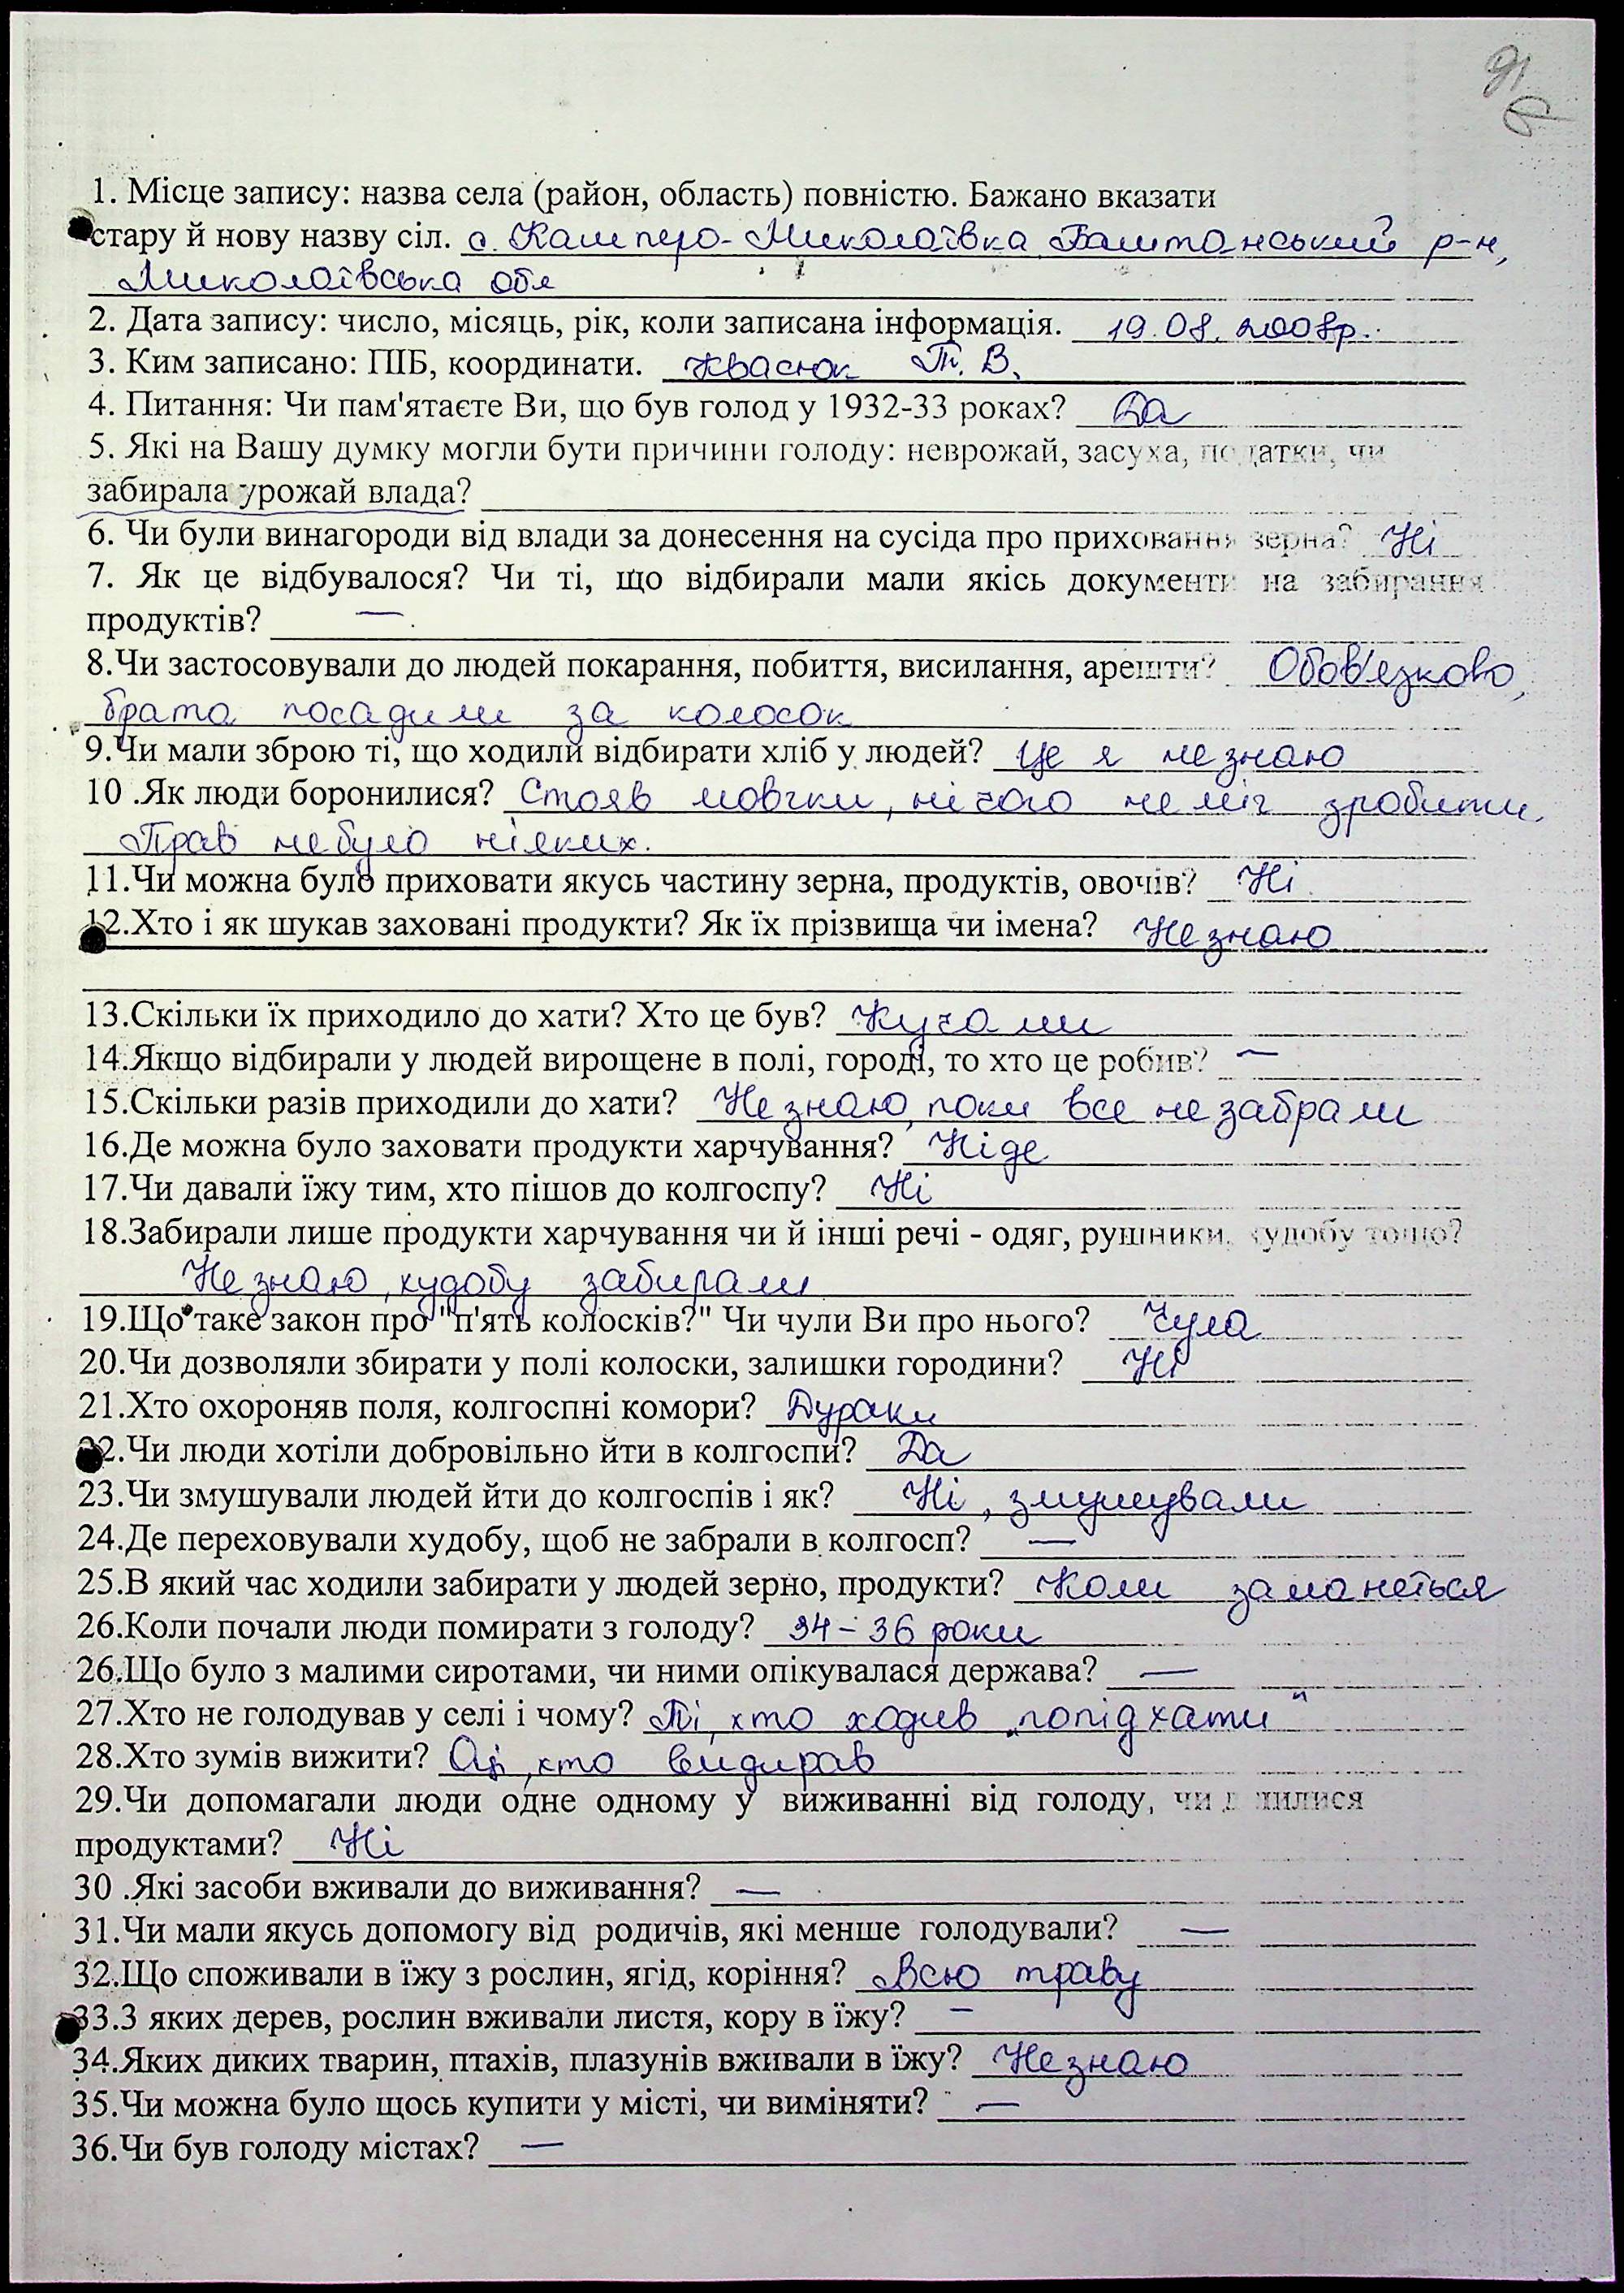 91
1. Місце запису: назва села (район, область) повністю. Бажано вказати
стару й нову назву сіл. с. Камперо-Миколаївка Баштанський р-н,
Миколаївська обл
2. Дата запису: число, місяць, рік, коли записана інформація. 19.08.2008р.
3. Ким записано: ПІБ, координати. Квасюк Т. В.
4. Питання: Чи пам'ятаєте Ви, що був голод у 1932-33 роках? Да
5. Які на Вашу думку могли бути причини голоду: неврожай, засуха, податки, чи
забирала урожай влада?
6. Чи були винагороди від влади за донесення на сусіда про приховання зерна? Ні
7. Як це відбувалося? Чи ті, що відбирали мали якісь документи на забирання
продуктів? —
8.Чи застосовували до людей покарання, побиття, висилання, арешти? Обов'язково,
брата посадили за колосок
9.Чи мали зброю ті, що ходили відбирати хліб у людей? Це я не знаю
10 .Як люди боронилися? Стояв мовчки, нічого не міг зробити.
Прав не було ніяких.
11.Чи можна було приховати якусь частину зерна, продуктів, овочів? Ні
12.Хто і як шукав заховані продукти? Як їх прізвища чи імена? Не знаю
13.Скільки їх приходило до хати? Хто це був? Кучами
14.Якщо відбирали у людей вирощене в полі, городі, то хто це робив? —
15.Скільки разів приходили до хати? Не знаю, поки все не забрали
16.Де можна було заховати продукти харчування? Ніде
17.Чи давали їжу тим, хто пішов до колгоспу? Ні
18.Забирали лише продукти харчування чи й інші речі - одяг, рушники, худобу тощо?
Не знаю, худобу забирали
19.Що таке закон про "п'ять колосків?" Чи чули Ви про нього? Чула
20.Чи дозволяли збирати у полі колоски, залишки городини? Ні
21.Хто охороняв поля, колгоспні комори? Дураки
22.Чи люди хотіли добровільно йти в колгоспи? Да
23.Чи змушували людей йти до колгоспів і як? Ні, змушували
24.Де переховували худобу, щоб не забрали в колгосп? —
25.В який час ходили забирати у людей зерно, продукти? Коли заманеться
26.Коли почали люди помирати з голоду? 34-36 роки
26.Що було з малими сиротами, чи ними опікувалася держава? —
27.Хто не голодував у селі і чому? Ті, хто ходив „попід хати"
28.Хто зумів вижити? Ой, хто видирав
29.Чи допомагали люди одне одному у виживанні від голоду, чи ділилися
продуктами? Ні
30 .Які засоби вживали до виживання? —
31.Чи мали якусь допомогу від родичів, які менше голодували? —
32.Що споживали в їжу з рослин, ягід, коріння? Всю траву
33.З яких дерев, рослин вживали листя, кору в їжу? –
34.Яких диких тварин, птахів, плазунів вживали в їжу? Не знаю
35.Чи можна було щось купити у місті, чи виміняти? —
36.Чи був голоду містах? —